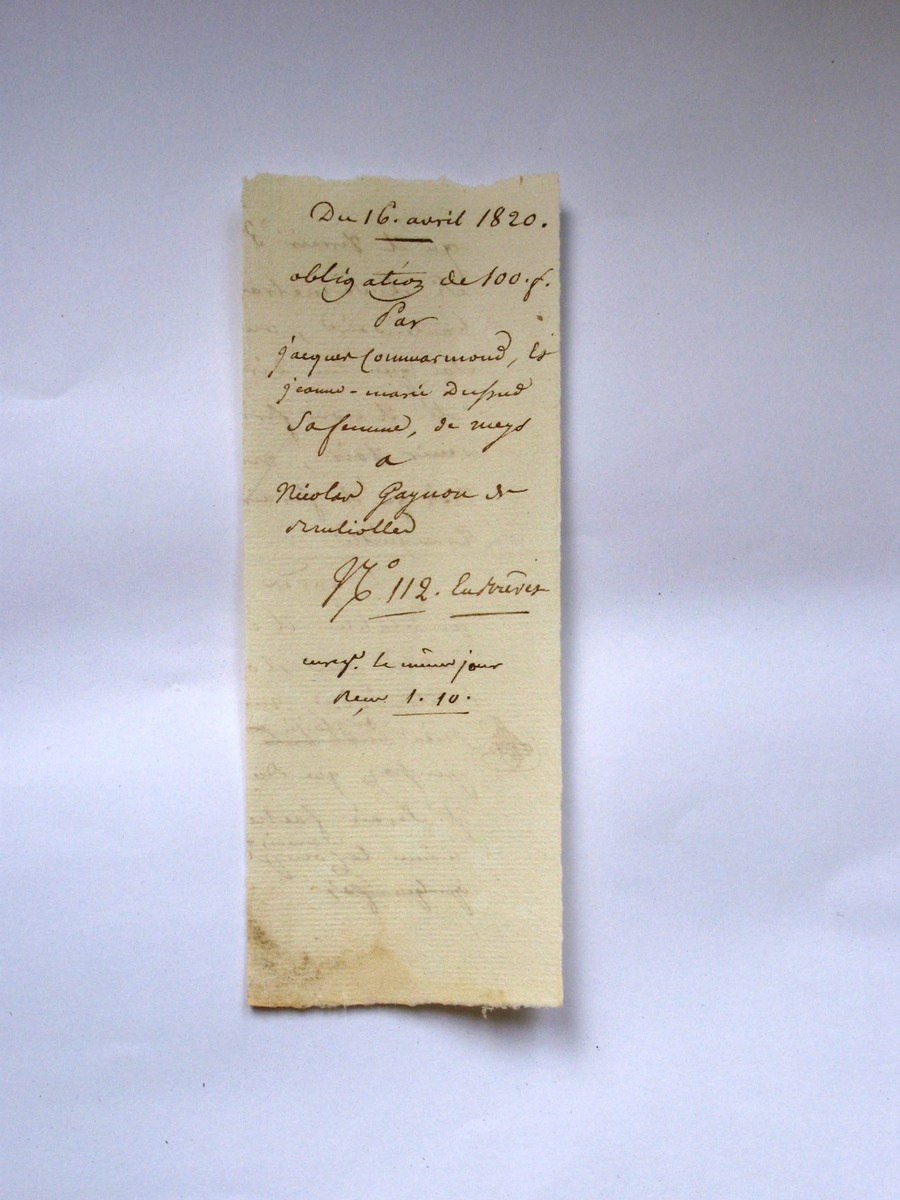 Du 16. avril 1820.
obligation de 100. f.
Par
jacques Commarmond, Et
jeanne-marie
Sa femme, de meys
a
Nicolas Gagnon de
N.º 112. En Brevet
enreg.t le même jour
Reçu 1. 10.